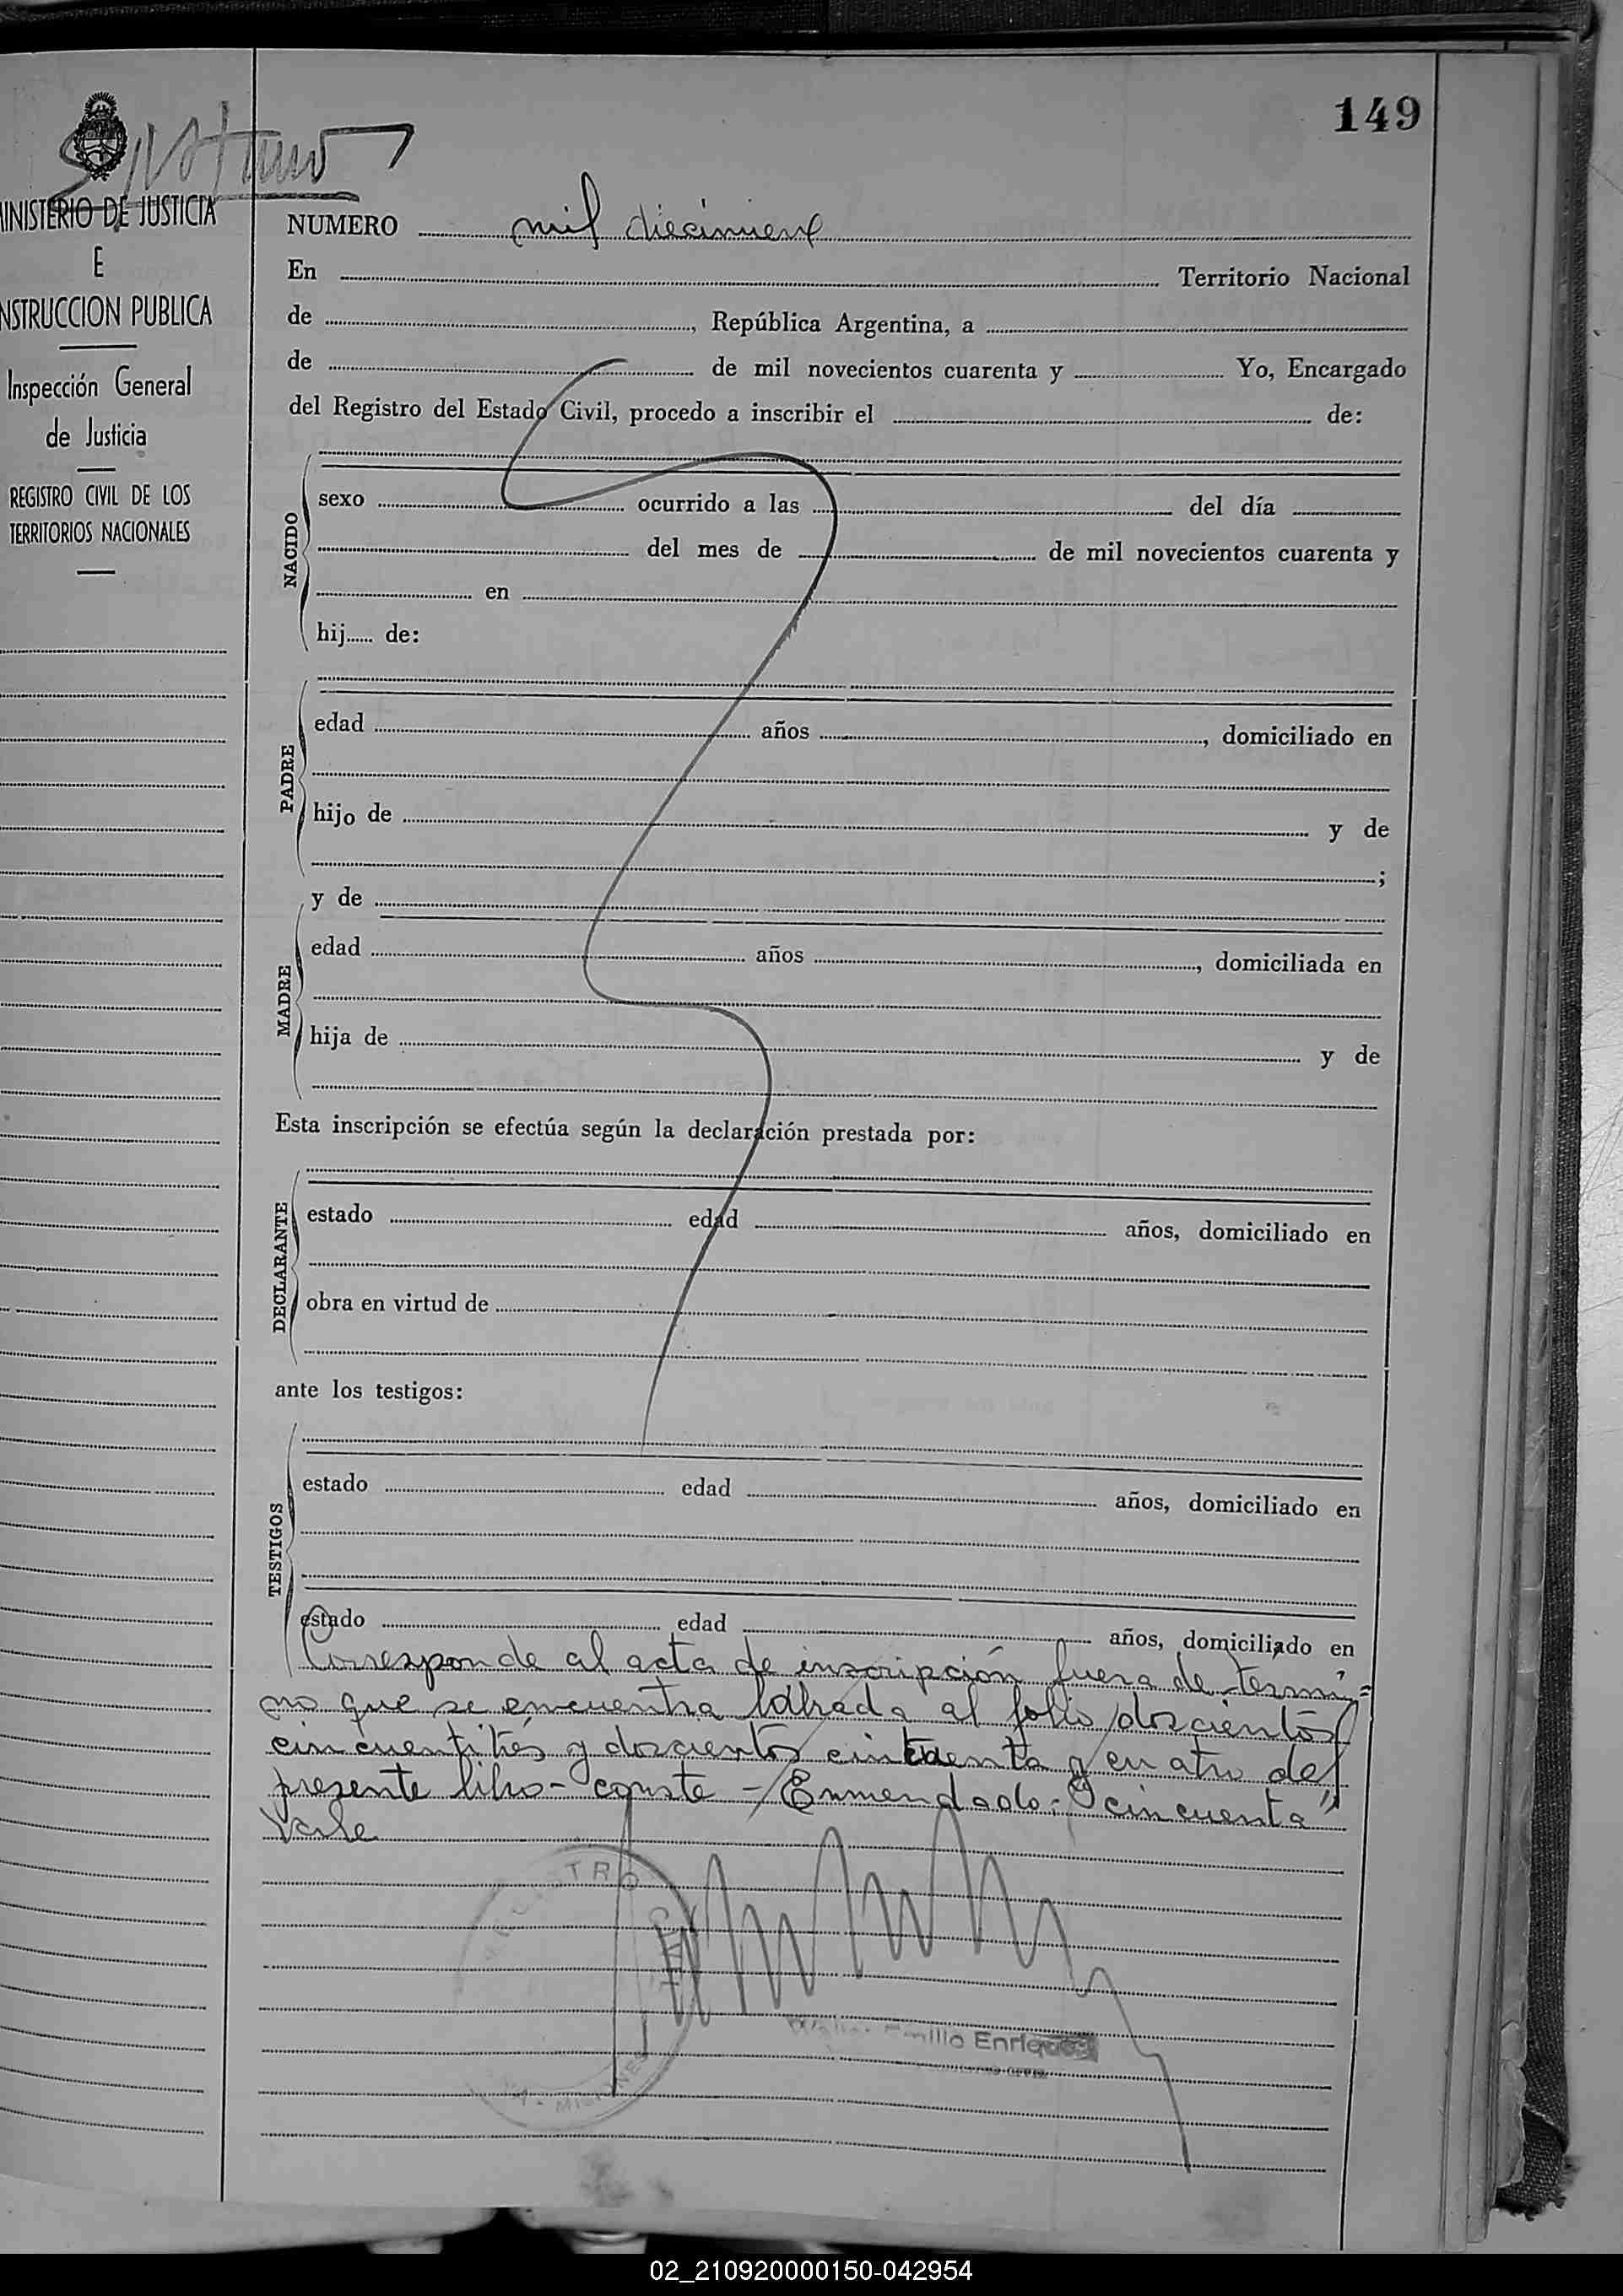 149
MINISTERIO DE JUSTICIA
E
NSTRUCCION PUBLICA
Inspección General
de Justicia
REGISTRO CIVIL DE LOS
TERRITORIOS NACIONALES
NUMERO mil diecinueve
En Territorio Nacional
de , República Argentina, a
de de mil novecientos cuarenta y Yo, Encargado
del Registro del Estado Civil, procedo a inscribir el de:
NACIDO
sexo ocurrido a las del día
del mes de de mil novecientos cuarenta y
en
hij...... de:
PADRE
edad años , domiciliado en
hijo de y de
;
y de
MADRE
edad años , domiciliada en
hija de y de
Esta inscripción se efectúa según la declaración prestada por:
DECLARANTE
estado edad años, domiciliado en
obra en virtud de
ante los testigos:
TESTIGOS
estado edad años, domiciliado en
estado edad años, domiciliado en
Corresponde al acta de inscripción fuera de térmi=
no que se encuentra labrada al folio doscientos
cincuentitrés y doscientos cincuenta y cuatro del
presente libro - conste - Enmendado: "cincuenta"
Vale
REGISTRO CIVIL
MISIONES
Emilio Enriquez
02_210920000150-042954